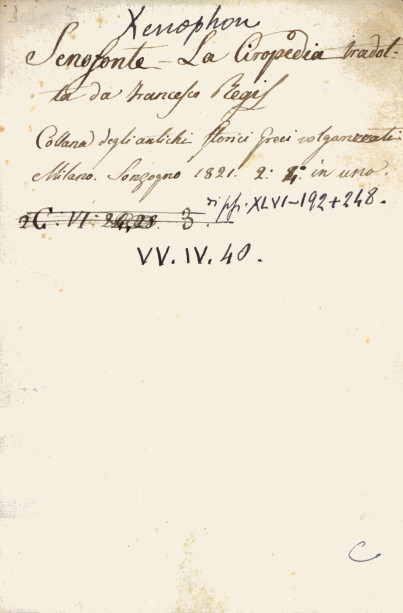 Xenophon
Senofonte - La Ciropedia tradot-
ta da Francesco Regis
Collana degli antichi storici Greci volgarizzati
Milano. Sonzogno 1821. 2. in uno.
pp. XLVI-192+248.
C. VI. 3.
VV. IV. 40.
C